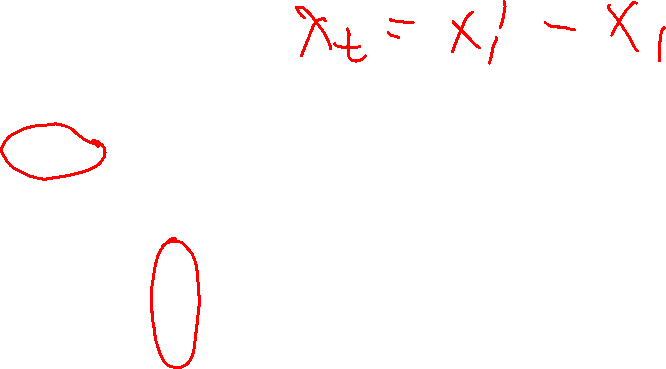 x_t = x_1' - x_1